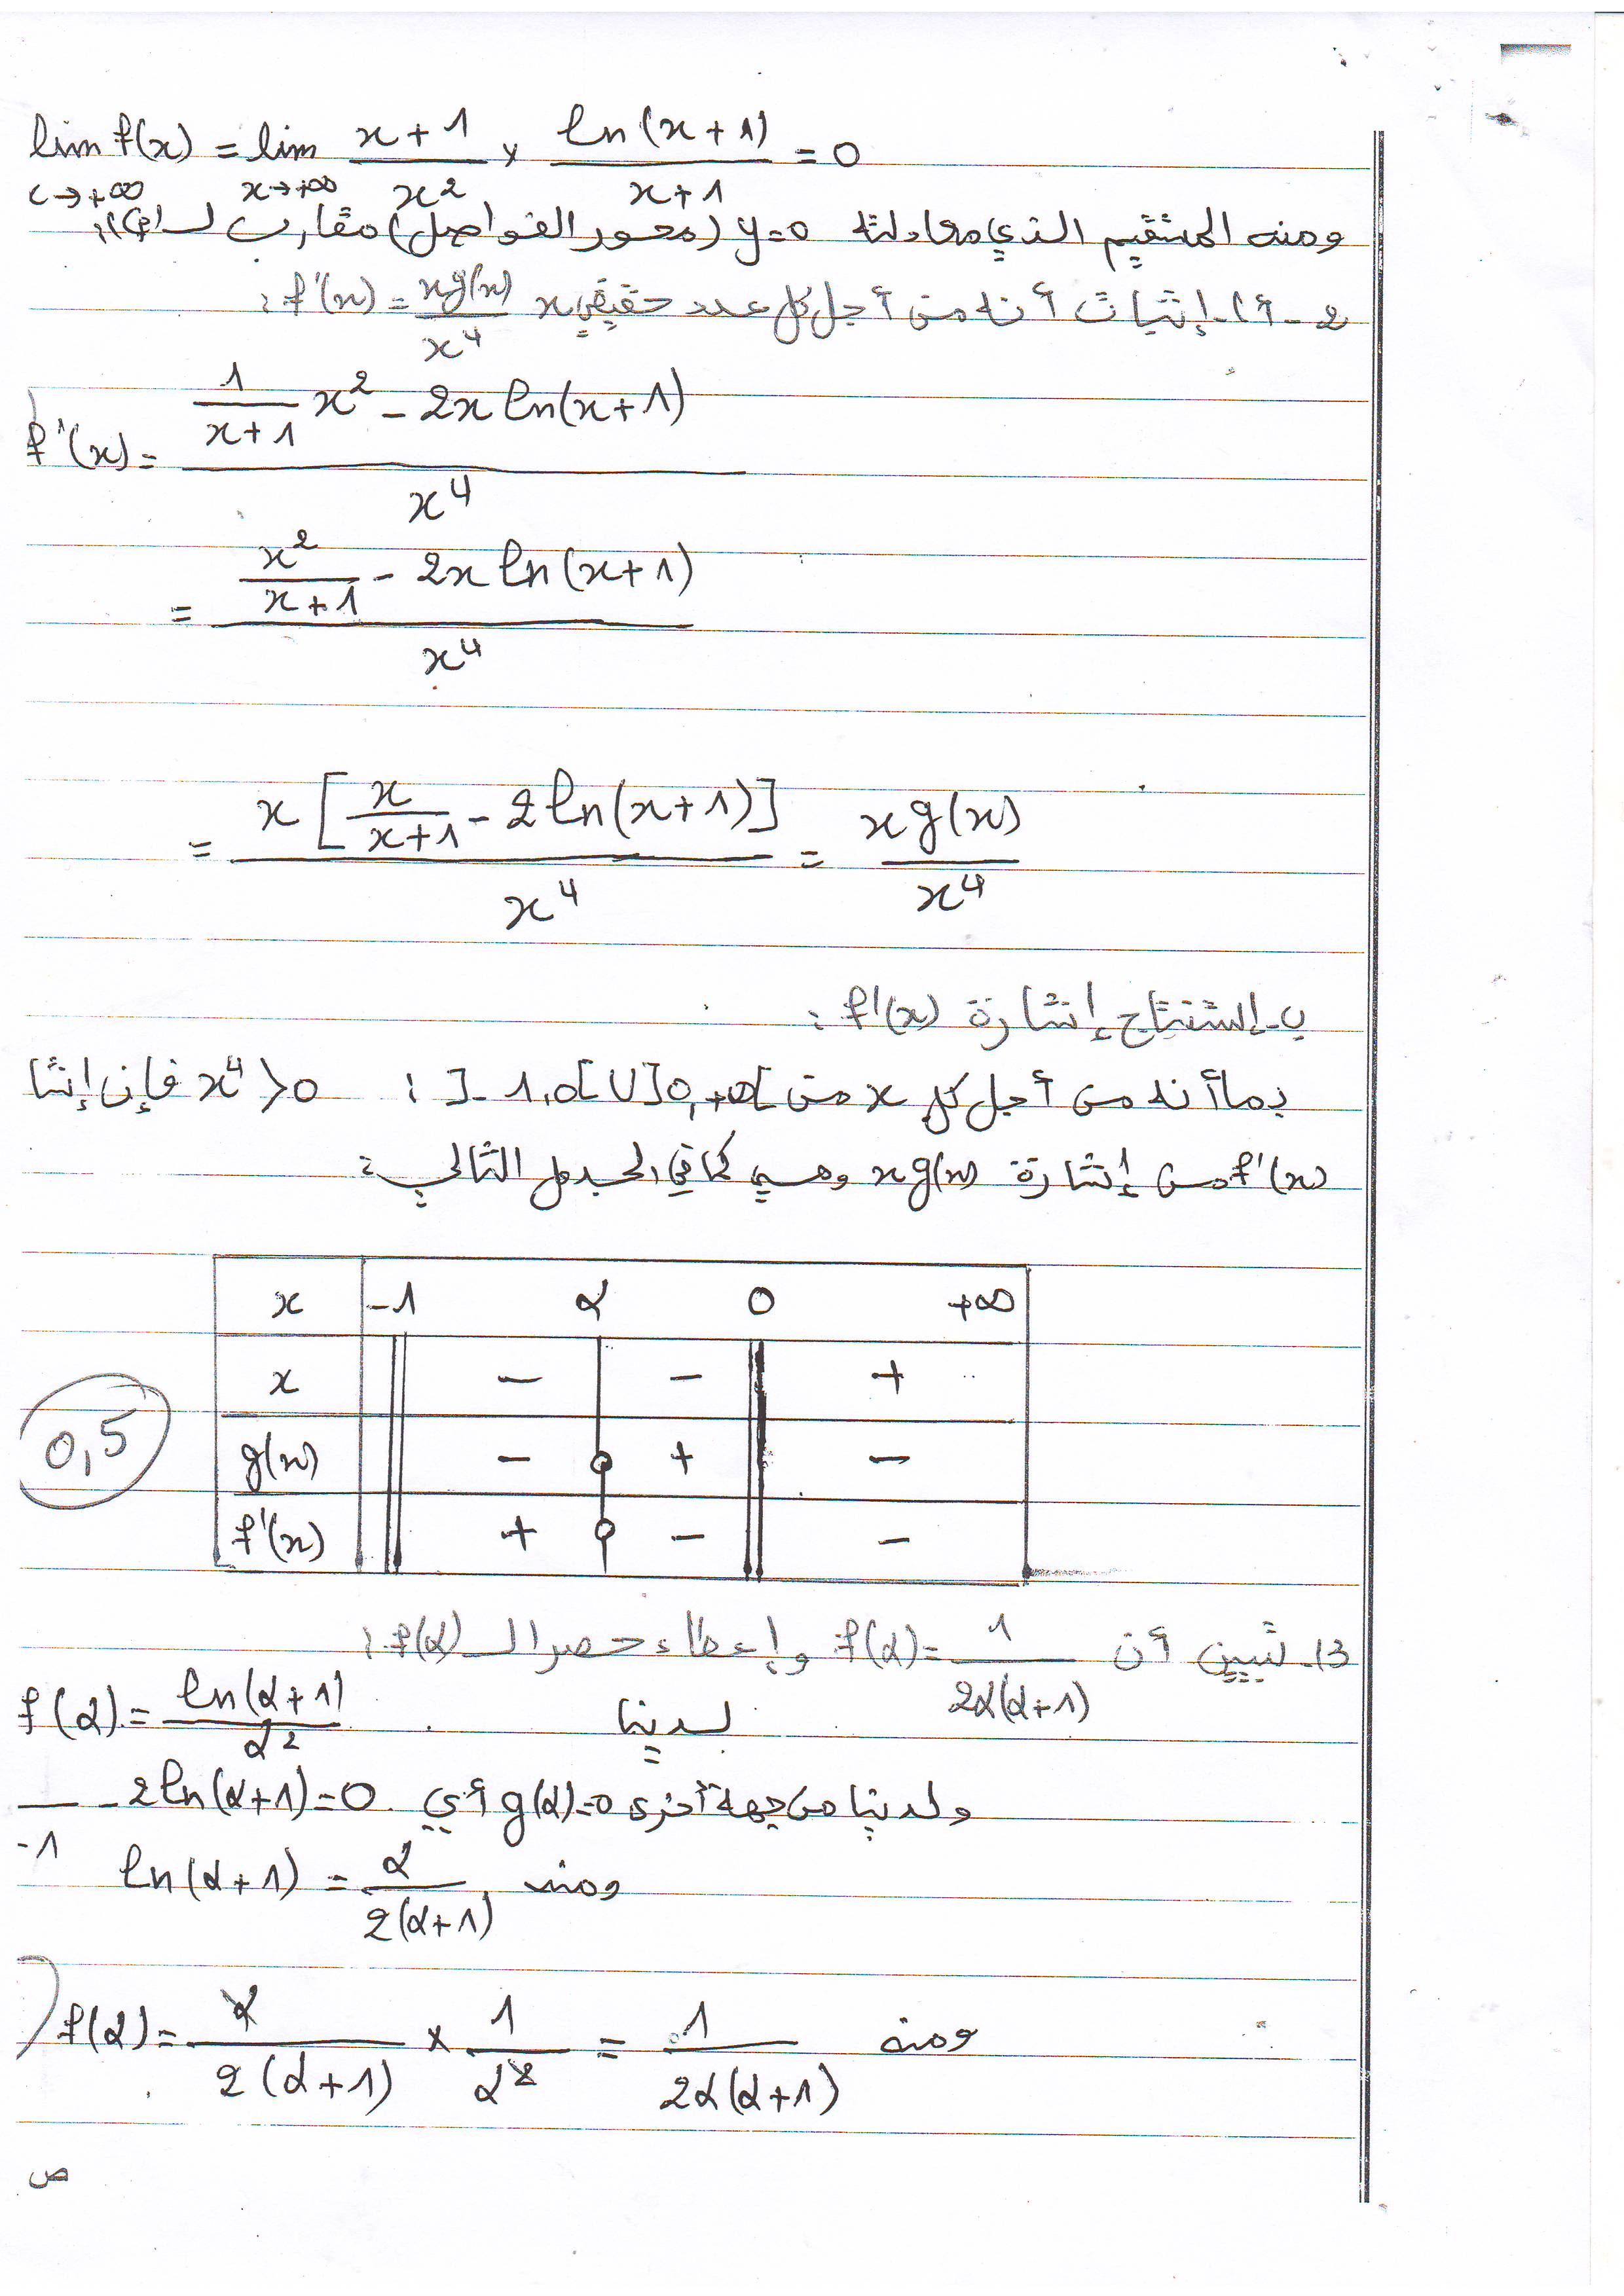 lim f(x) = lim (x+1)/x² × ln(x+1)/(x+1) = 0
x→+∞ x→+∞
ومنه المستقيم الذي معادلته y=0 (محور الفواصل) مقارب لـ
2 - أ - إثبات أنه من أجل كل عدد حقيقي x f'(x) = xg(x)/x⁴ :
f'(x) = (1/(x+1) x² - 2x ln(x+1))/x⁴
= (x²/(x+1) - 2x ln(x+1))/x⁴
= x[x/(x+1) - 2ln(x+1)]/x⁴ = xg(x)/x⁴
ب - إستنتاج إشارة f'(x) :
بما أنه من أجل كل x من ]-1,0[∪]0,+∞[ : x⁴>0 فإن إشا
f'(x) من إشارة xg(x) وهي كما في الجدول التالي :
x -1 α 0 +∞
x - - +
g(x) - 0 + -
0,5
f'(x) + 0 - -
3 - تبيين أن f(α) = 1/(2α(α+1)) وإعطاء حصر لـ f(α) :
لدينا f(α) = ln(α+1)/α²
ولدينا من جهة أخرى g(α)=0 أي - 2ln(α+1)=0
-1
ومنه ln(α+1) = α/(2(α+1))
ومنه f(α) = α/(2(α+1)) × 1/α² = 1/(2α(α+1))
ص